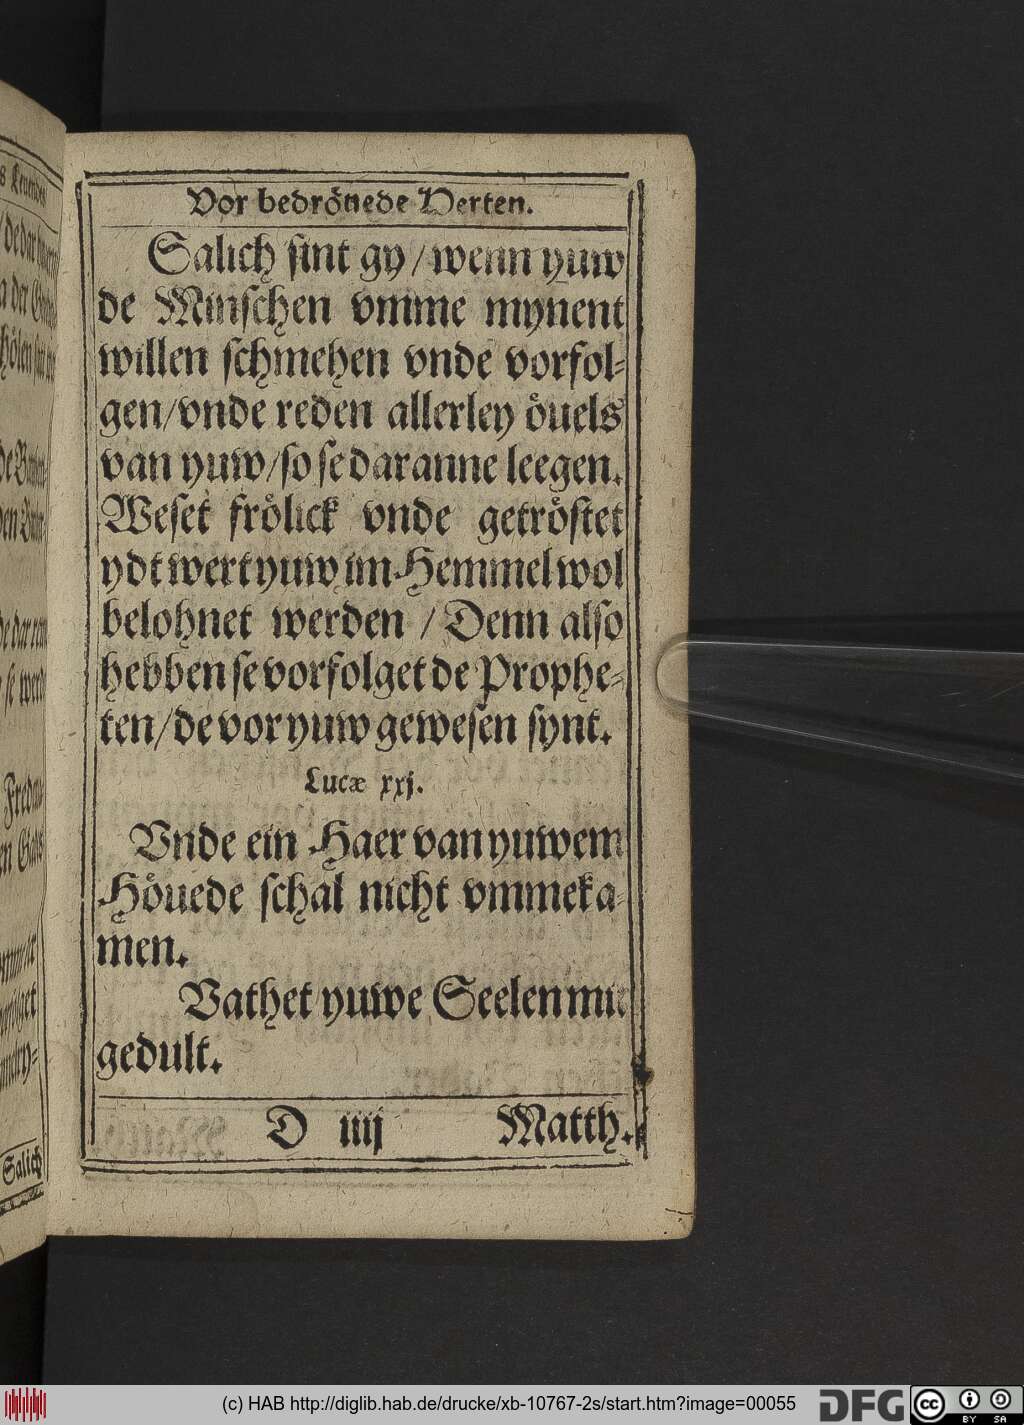 Vor bedrönede Herten.
Salich sint gy / wenn yuw
de Minschen vmme mynent
willen schmehen vnde vorfol-
gen / vnde reden allerley öuels
van yuw / so se daranne leegen.
Weset frölick vnde getröstet
ydt wert yuw im Hemmel wol
belohnet werden / Denn also
hebben se vorfolget de Prophe-
ten / de vor yuw gewesen synt.
Lucæ xxj.
Vnde ein Haer van yuwem
Höuede schal nicht vmmeka-
men.
Vathet yuwe Seelen mit
gedult.
D iiij Matth.
Salich
(c) HAB http://diglib.hab.de/drucke/xb-10767-2s/start.htm?image=00055
DFG
cc
BY SA